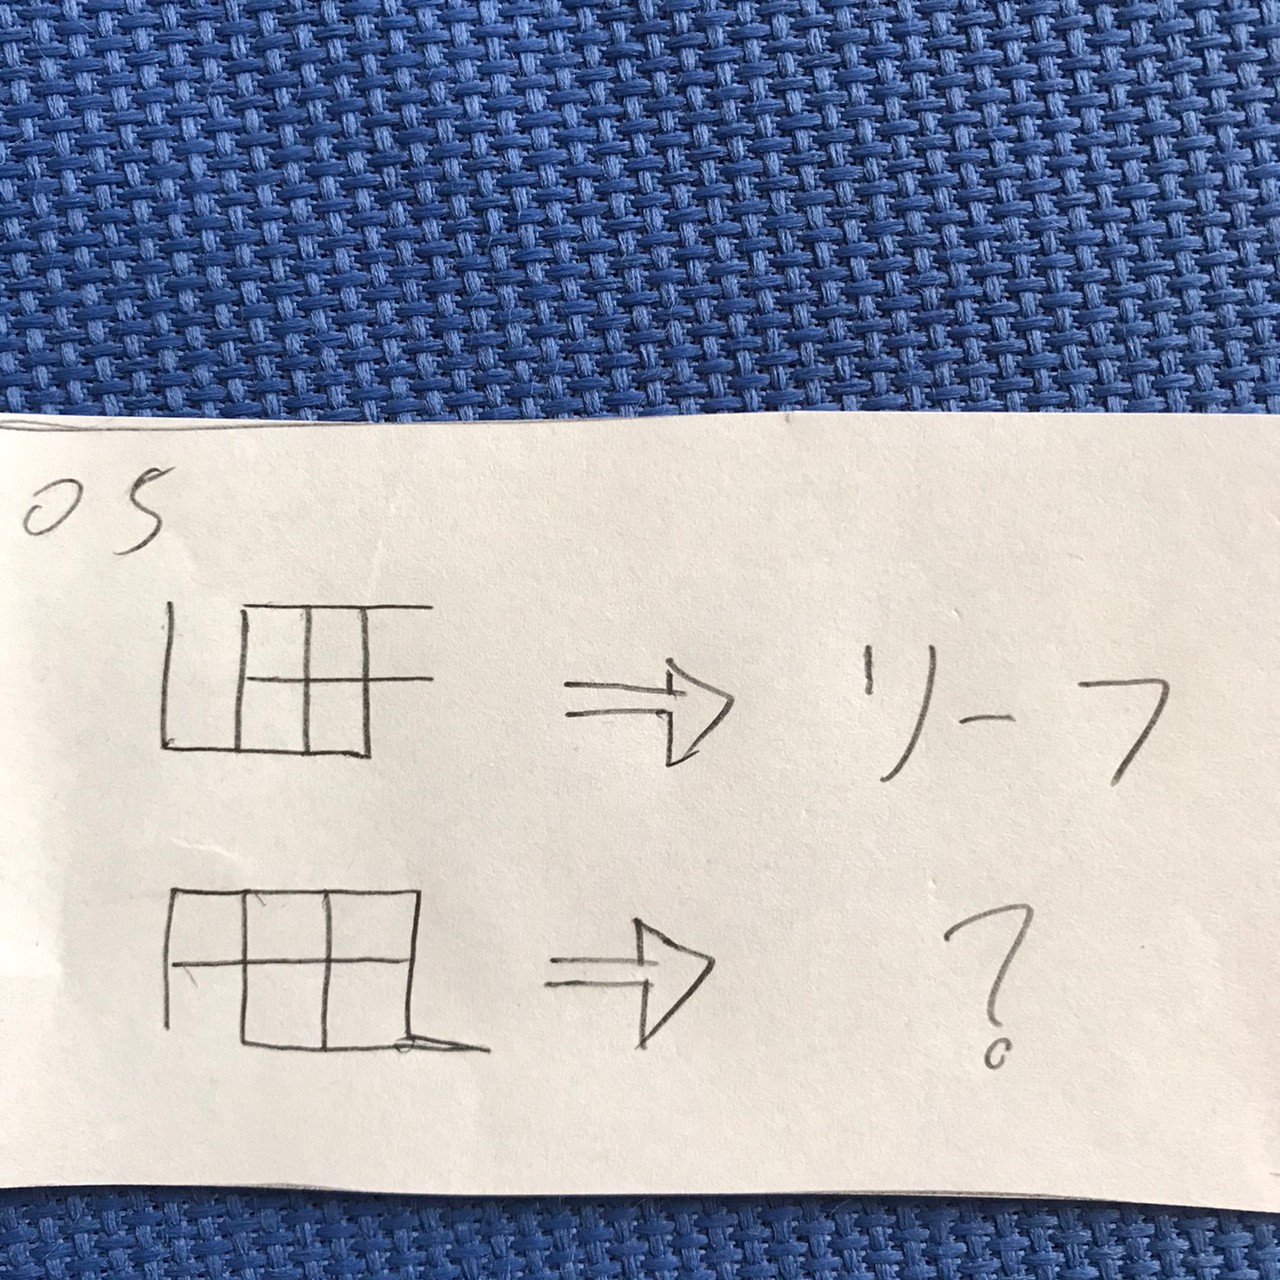 05
⇒ リーフ
⇒ ?